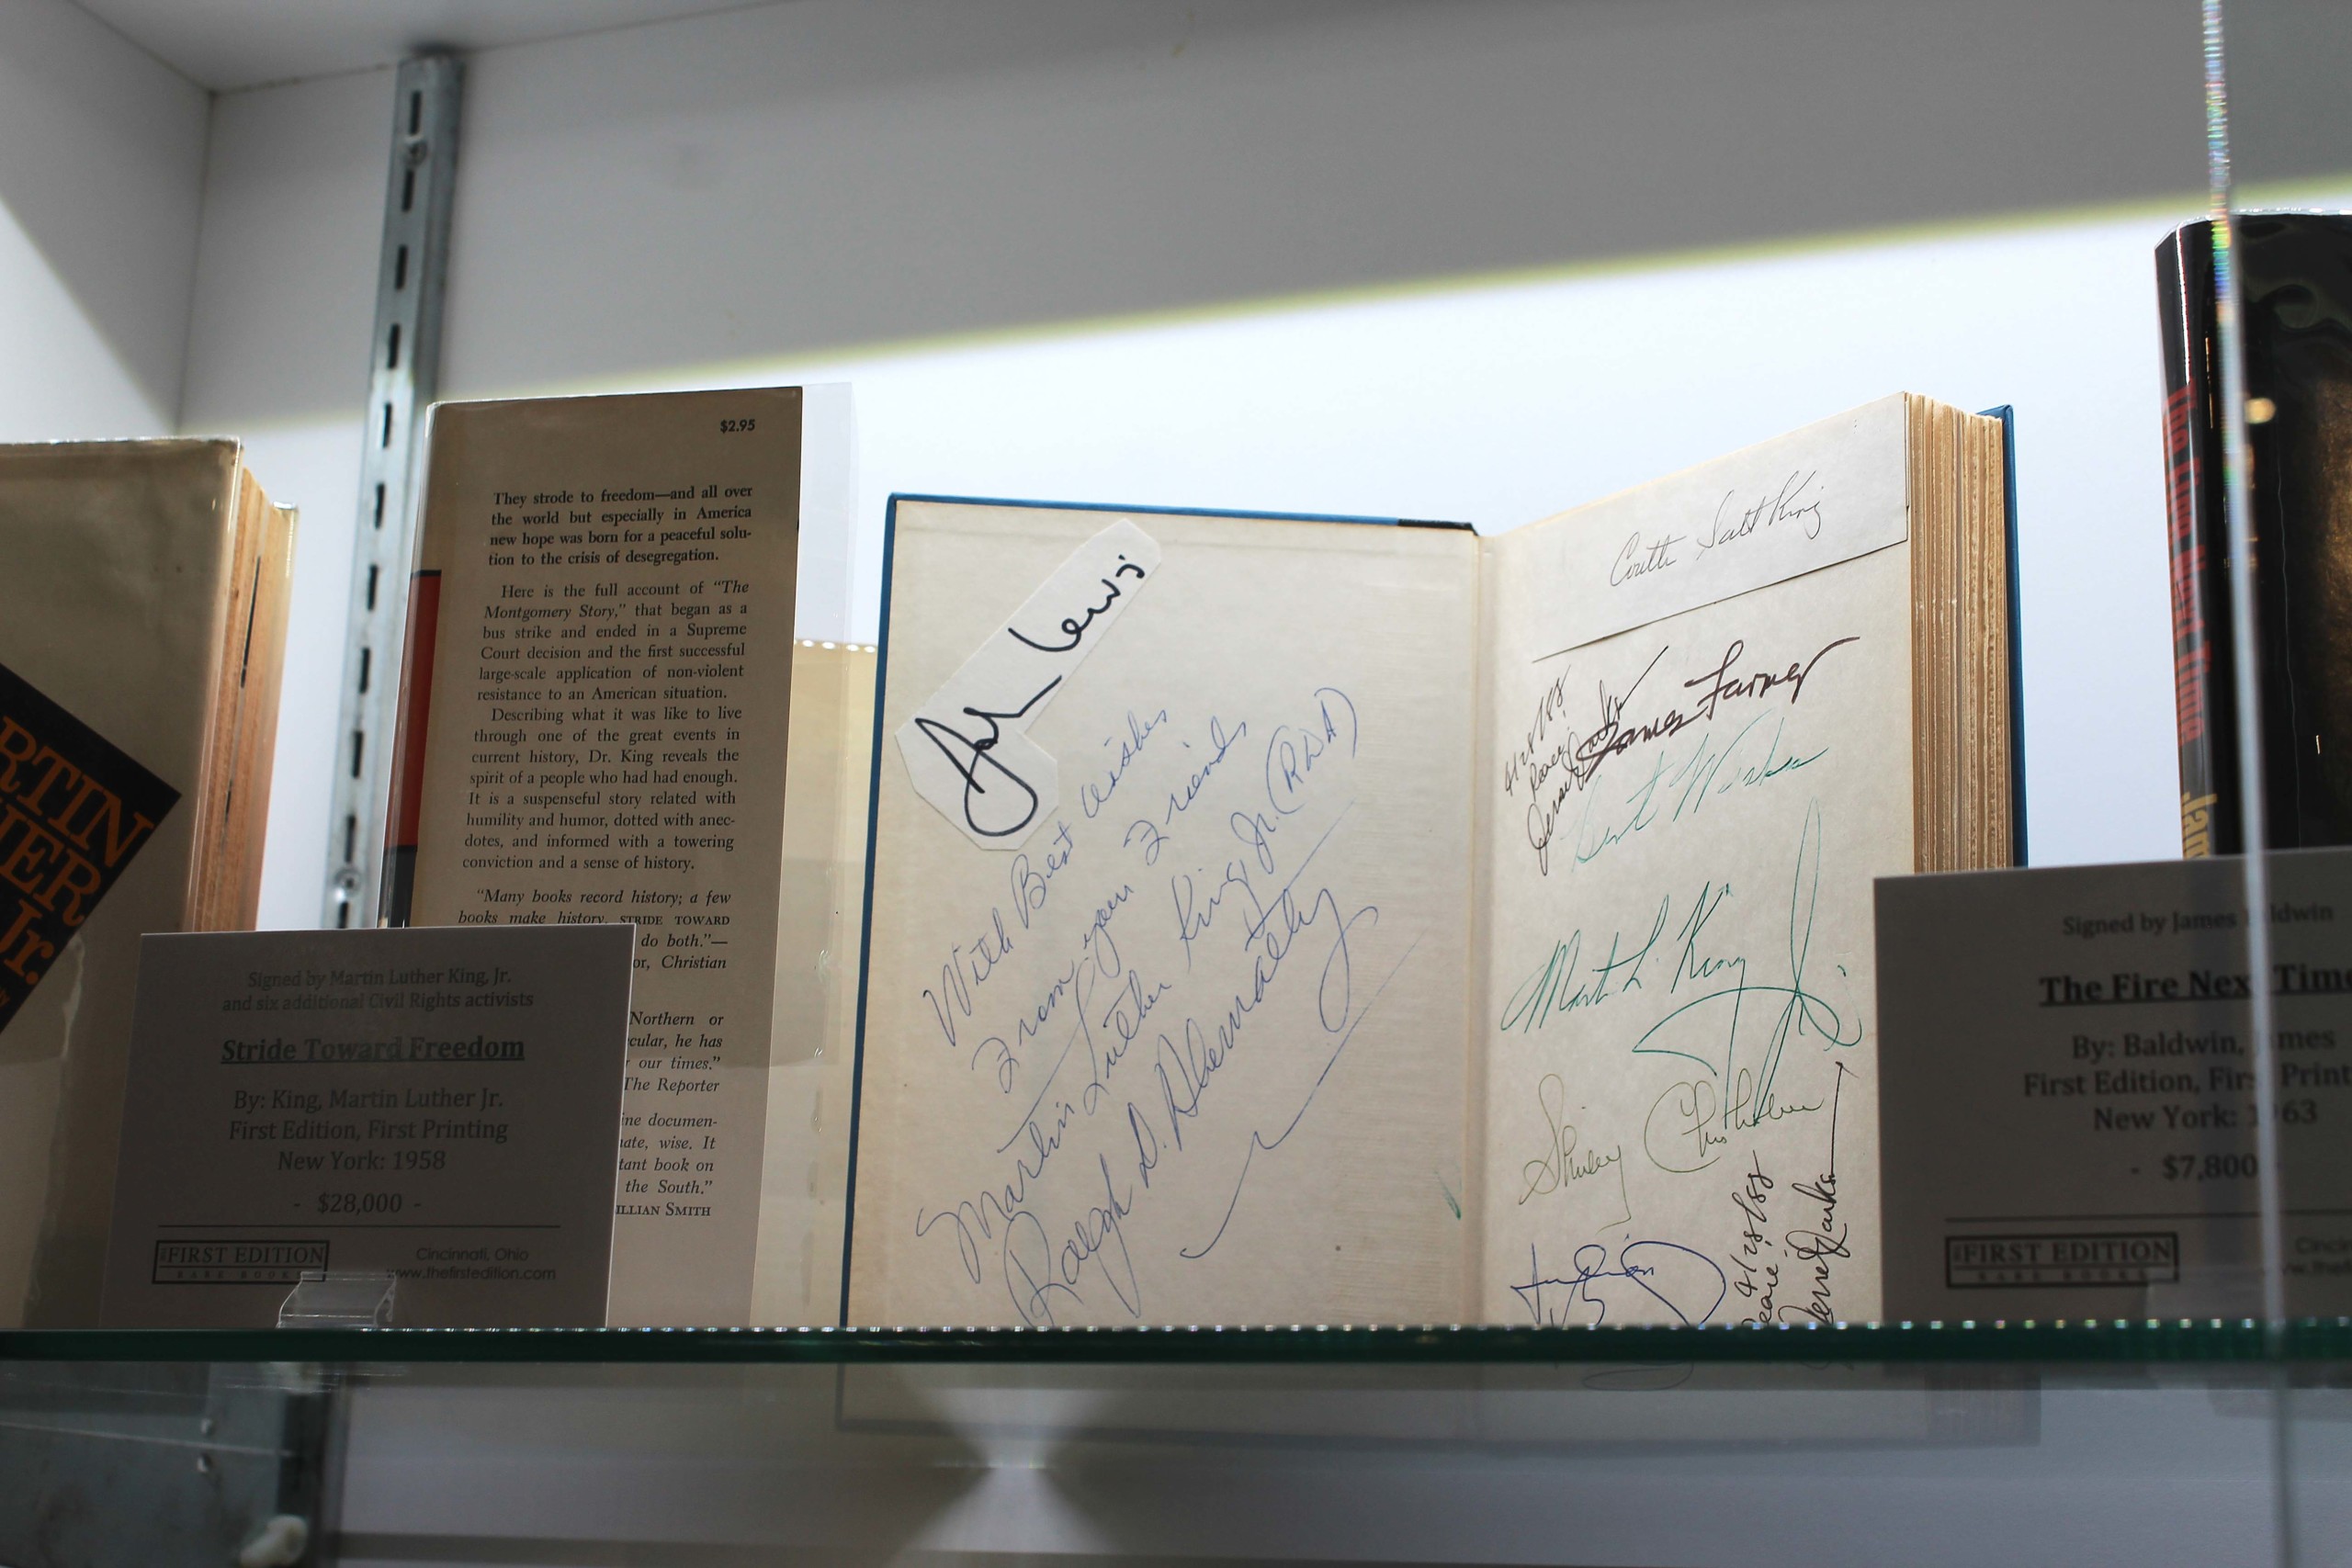 RTIN
HER
Jr.
$2.95
They strode to freedom—and all over
the world but especially in America
new hope was born for a peaceful solu-
tion to the crisis of desegregation.
Here is the full account of "The
Montgomery Story," that began as a
bus strike and ended in a Supreme
Court decision and the first successful
large-scale application of non-violent
resistance to an American situation.
Describing what it was like to live
through one of the great events in
current history, Dr. King reveals the
spirit of a people who had had enough.
It is a suspenseful story related with
humility and humor, dotted with anec-
dotes, and informed with a towering
conviction and a sense of history.
"Many books record history; a few
books make history. STRIDE TOWARD
do both."—
or, Christian
Northern or
cular, he has
our times."
The Reporter
ine documen-
nate, wise. It
tant book on
the South."
ILLIAN SMITH
Signed by Martin Luther King, Jr.
and six additional Civil Rights activists
Stride Toward Freedom
By: King, Martin Luther Jr.
First Edition, First Printing
New York: 1958
- $28,000 -
THE FIRST EDITION
RARE BOOKS
Cincinnati, Ohio
www.thefirstedition.com
John Lewis
With Best Wishes
From your Friends
Martin Luther King Jr. (RDA)
Ralph D. Abernathy
Coretta Scott King
4/28/88
Peace!
James Farmer
Best Wishes
Martin L. King Jr.
Shirley Chisholm
4/28/88
The Fire Next Time
Signed by James Baldwin
The Fire Next Time
By: Baldwin, James
First Edition, First Print
New York: 1963
- $7,800 -
THE FIRST EDITION
RARE BOOKS
Cinci